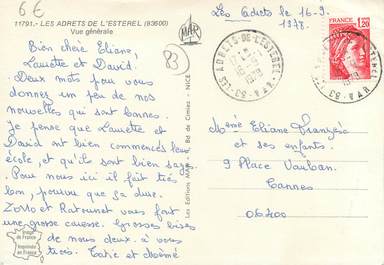 6€
11791.- LES ADRETS DE L'ESTEREL (83600)
Vue générale
Les Adrets le 16-9.
1978.
Bien chère Eliane,
Laurette et David.
Deux mots pour vous
donner un peu de nos
nouvelles qui sont bonnes.
Je pense que Laurette et
David ont bien commencés leur
école, et qu'ils sont bien sages.
Pour nous ici il fait très
bon, pourvu que ça dure.
Zorro et Ratounet vous font
une grosse caresse. Grosses bises
de nous deux. à vous
trois. Tata et
83
MAR
Les Editions MAR Bd de Cimiez - NICE
Tirage de France
Imprimée en France
83 - LES ADRETS-DE-L'ESTEREL - VAR
1978
REPUBLIQUE FRANÇAISE
1,20
Mme Eliane
et ses enfants.
9 Place Vauban.
Cannes
06400